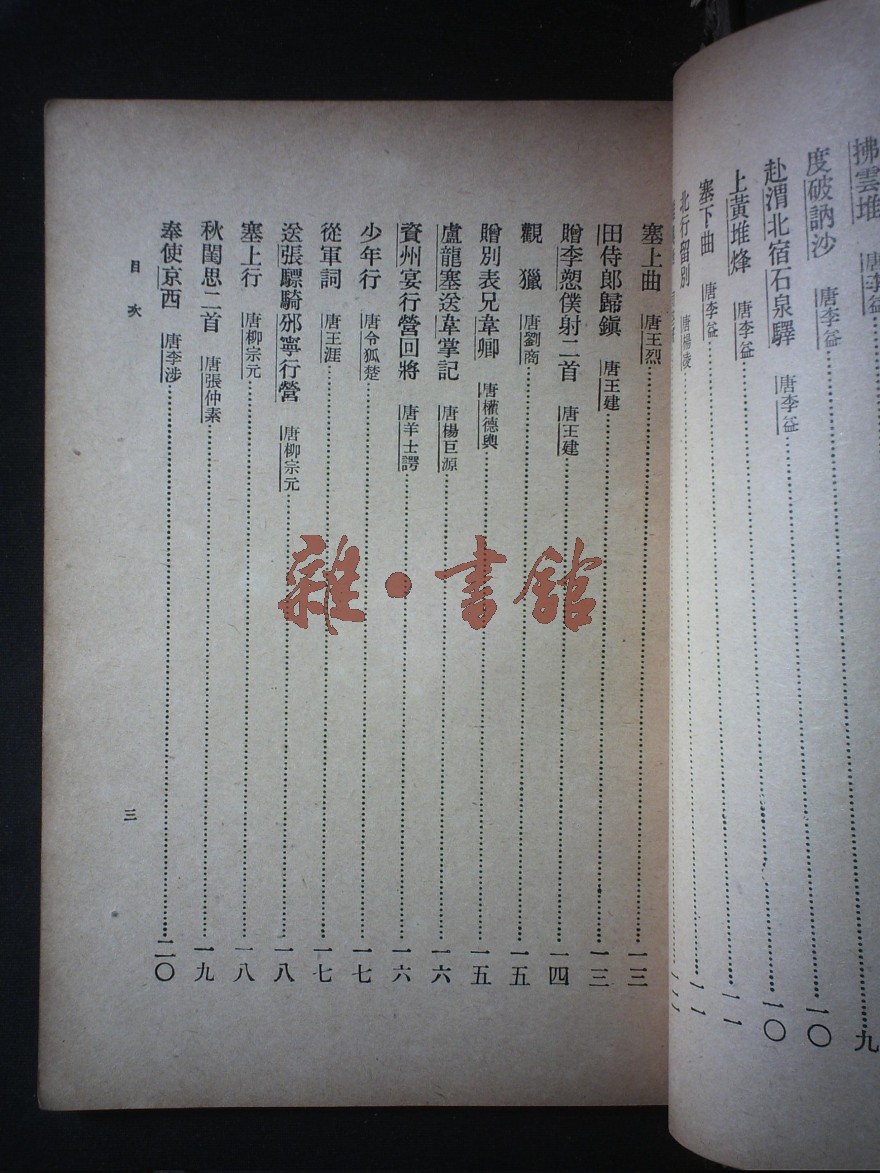 拂雲堆 唐李益 九
度破訥沙 唐李益 一〇
赴渭北宿石泉驛 唐李益 一〇
上黃堆烽 唐李益 一一
塞下曲 唐李益 一一
北行留別 唐楊凌
塞上曲 唐王烈 一三
田侍郎歸鎭 唐王建 一三
贈李愬僕射二首 唐王建 一四
觀獵 唐劉商 一五
贈別表兄韋卿 唐權德輿 一五
盧龍塞送韋掌記 唐楊巨源 一六
資州宴行營回將 唐羊士諤 一六
少年行 唐令狐楚 一七
從軍詞 唐王涯 一七
送張驃騎邠寧行營 唐柳宗元 一八
塞上行 唐柳宗元 一八
秋閨思二首 唐張仲素 一九
奉使京西 唐李涉 二〇
目次
三
雜·書館